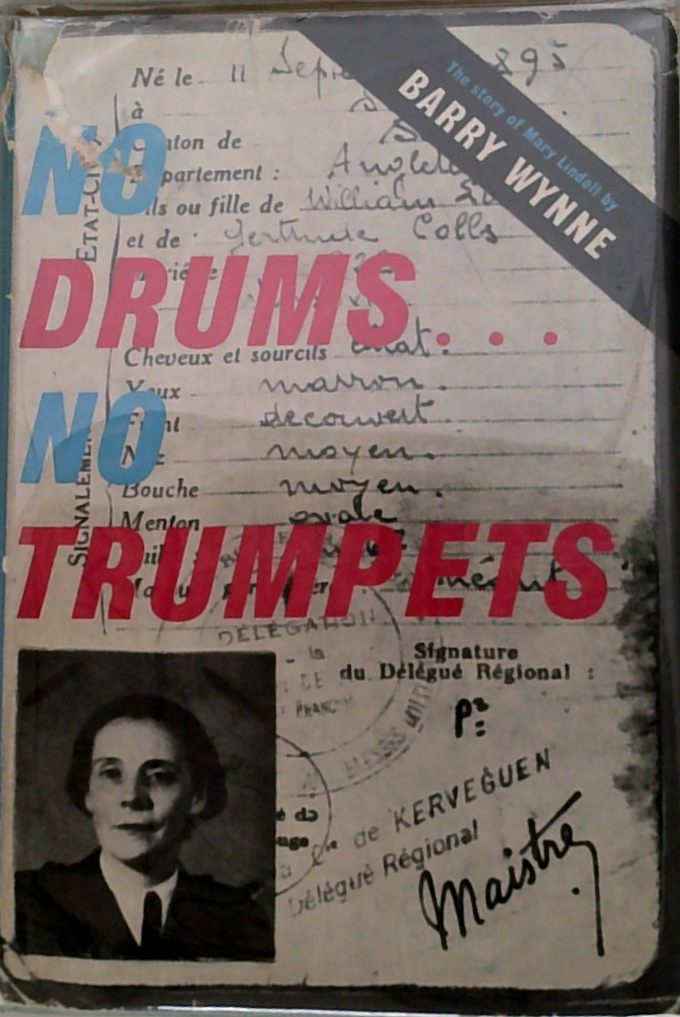 The story of Mary Lindell by
BARRY WYNNE
NO
DRUMS...
NO
TRUMPETS
Né le 11
à
de
partement :
ls ou fille de William
et de Gertrude Colls
ÉTAT-CIVIL
Cheveux et sourcils chat.
marron.
decouvert
moyen.
Bouche moyen.
Menton ovale
SIGNALEMEN
DÉLÉGATION
Signature
du Délégué Régional :
Pr
de KERVEGUEN
Délégué Régional
Maistre